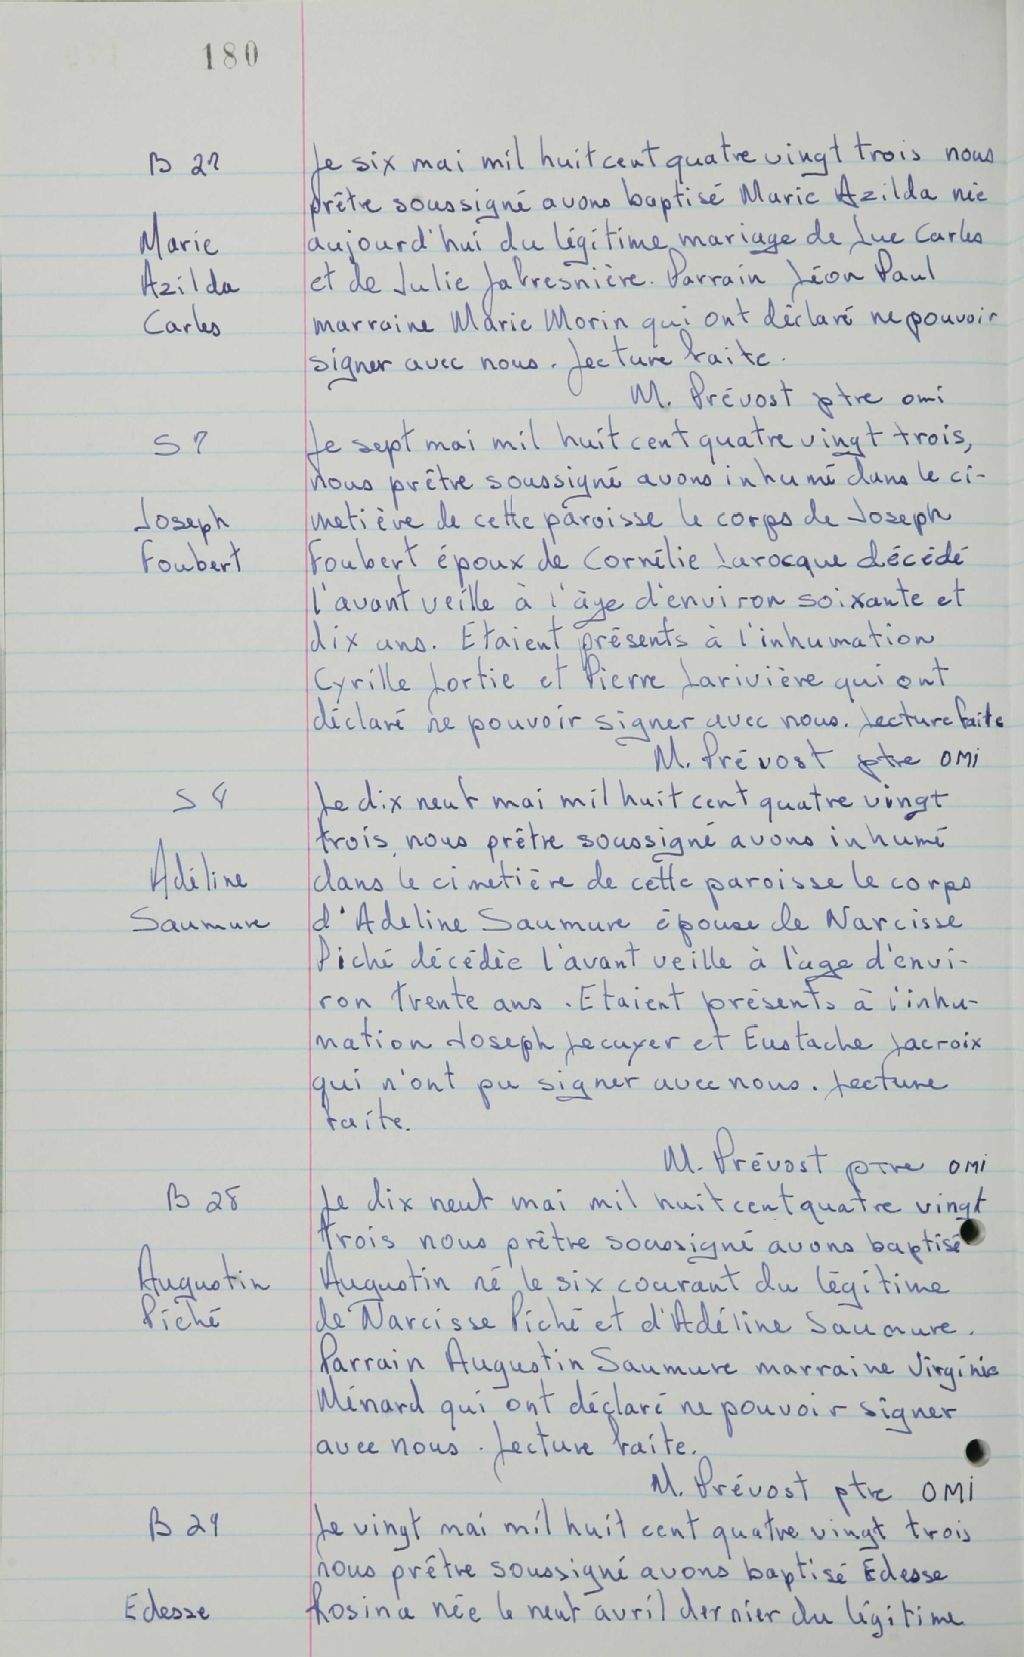 180
B 27
Le six mai mil huit cent quatre vingt trois nous
prêtre soussigné avons baptisé Marie Azilda née
Marie
aujourd'hui du légitime mariage de Luc Carles
Azilda
et de Julie Labresnière. Parrain Léon Paul
Carles
marraine Marie Morin qui ont déclaré ne pouvoir
signer avec nous. Lecture faite.
M. Prévost ptre omi
S 7
Le sept mai mil huit cent quatre vingt trois,
nous prêtre soussigné avons inhumé dans le ci-
Joseph
metière de cette paroisse le corps de Joseph
Foubert
Foubert époux de Cornélie Larocque décédé
l'avant veille à l'âge d'environ soixante et
dix ans. Etaient présents à l'inhumation
Cyrille Lortie et Pierre Larivière qui ont
déclaré ne pouvoir signer avec nous. Lecture faite
M. Prévost ptre OMI
S 8
Le dix neuf mai mil huit cent quatre vingt
trois, nous prêtre soussigné avons inhumé
Adéline
dans le cimetière de cette paroisse le corps
Saumure
d'Adeline Saumure épouse de Narcisse
Piché décédée l'avant veille à l'age d'envi-
ron trente ans. Etaient présents à l'inhu-
mation Joseph Lecuyer et Eustache Lacroix
qui n'ont pu signer avec nous. Lecture
faite.
M. Prévost ptre OMI
B 28
Le dix neuf mai mil huit cent quatre vingt
trois nous prêtre soussigné avons baptisé
Augustin
Augustin né le six courant du légitime
Piché
de Narcisse Piché et d'Adéline Saumure.
Parrain Augustin Saumure marraine Virginie
Ménard qui ont déclaré ne pouvoir signer
avec nous. Lecture faite.
M. Prévost ptre OMI
B 29
Le vingt mai mil huit cent quatre vingt trois
nous prêtre soussigné avons baptisé Edesse
Edesse
Rosina née le neuf avril dernier du légitime